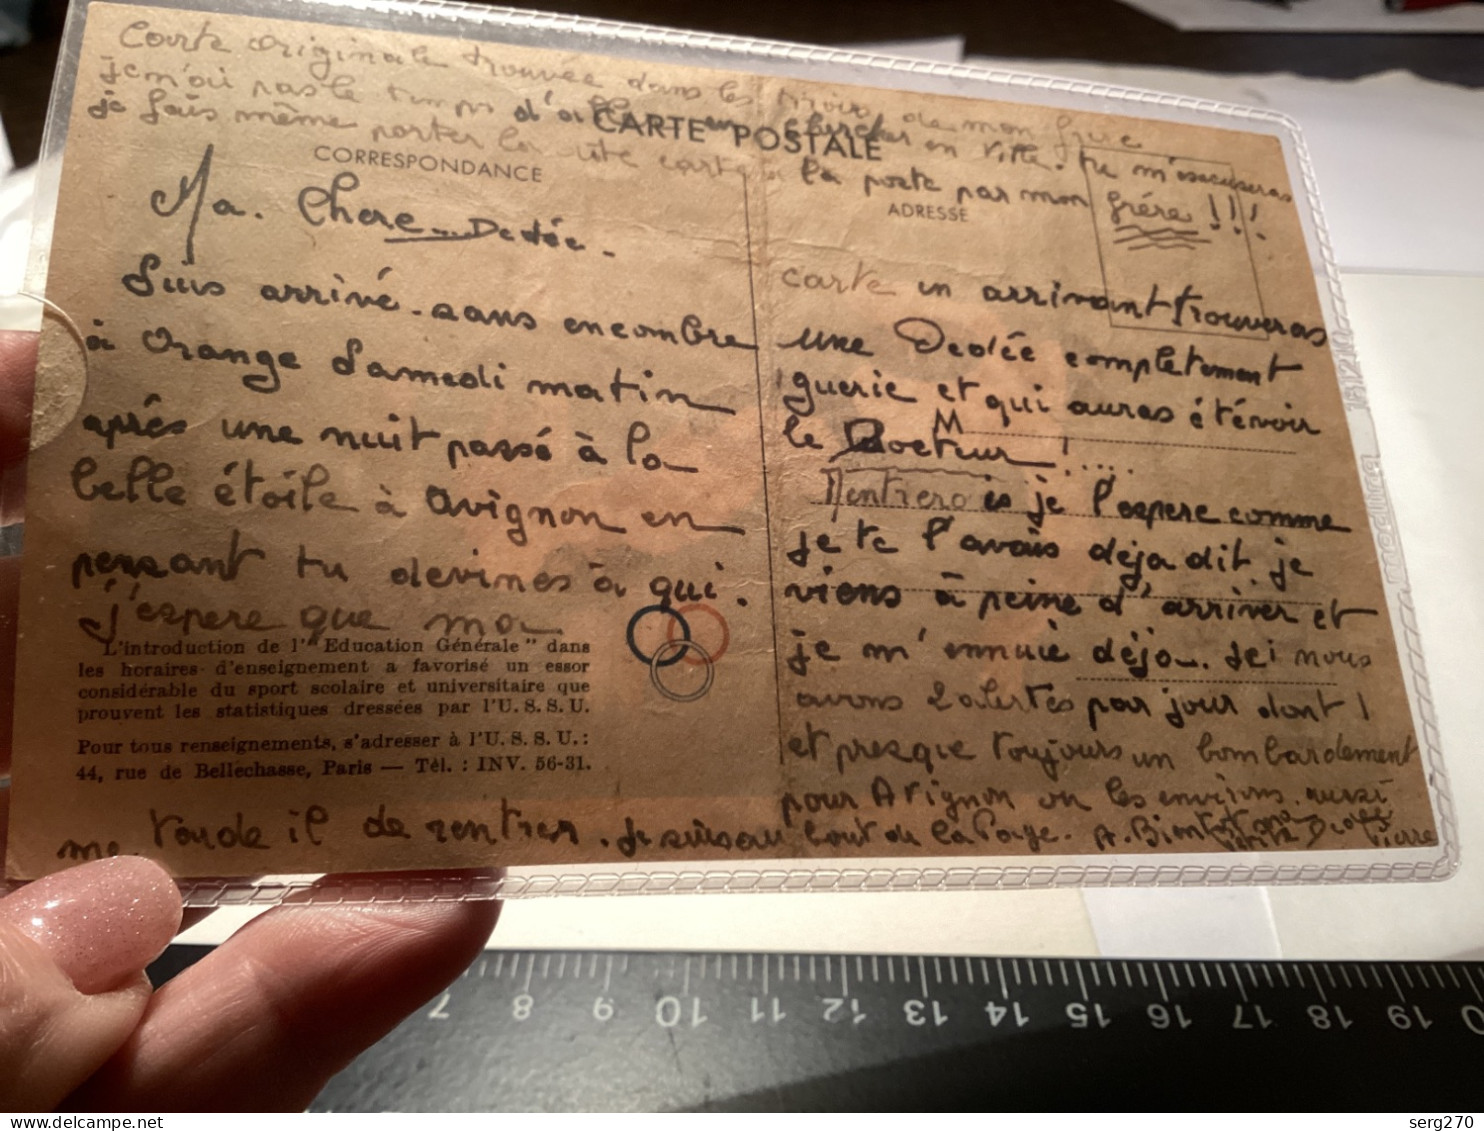 Carte originale trouvée dans les tiroirs de mon frère
je n'ai pas le temps d'aller en chercher en ville. tu m'excuseras
je fais même porter la carte à la poste par mon frère !!!
CARTE POSTALE
CORRESPONDANCE
ADRESSE
Ma. Chere Dedée.
Suis arrivé sans encombre
à Orange Samedi matin
après une nuit passé à la
belle étoile à Avignon en
pensant tu devines à qui.
J'espere que ma
carte en arrivant trouveras
une Dedée completement
guerie et qui auras été voir
le Docteur !.....
M
Rentrero is je l'espere comme
je te l'avais déja dit je
viens à peine d'arriver et
je m'ennuie déja. Ici nous
avons 2 alertes par jour dont 1
et presque toujours un bombardement
pour Avignon ou les environs. aussi
me tarde il de rentrer. Je suis au bout de la page. A. Bientot Dedée
Pierre
"L'introduction de l'" Education Générale " dans
les horaires d'enseignement a favorisé un essor
considérable du sport scolaire et universitaire que
prouvent les statistiques dressées par l'U. S. S. U.
Pour tous renseignements, s'adresser à l'U. S. S. U. :
44, rue de Bellechasse, Paris — Tél. : INV. 56-31.
7 8 9 10 11 12 13 14 15 16 17 18 19
serg270
delcampe.net